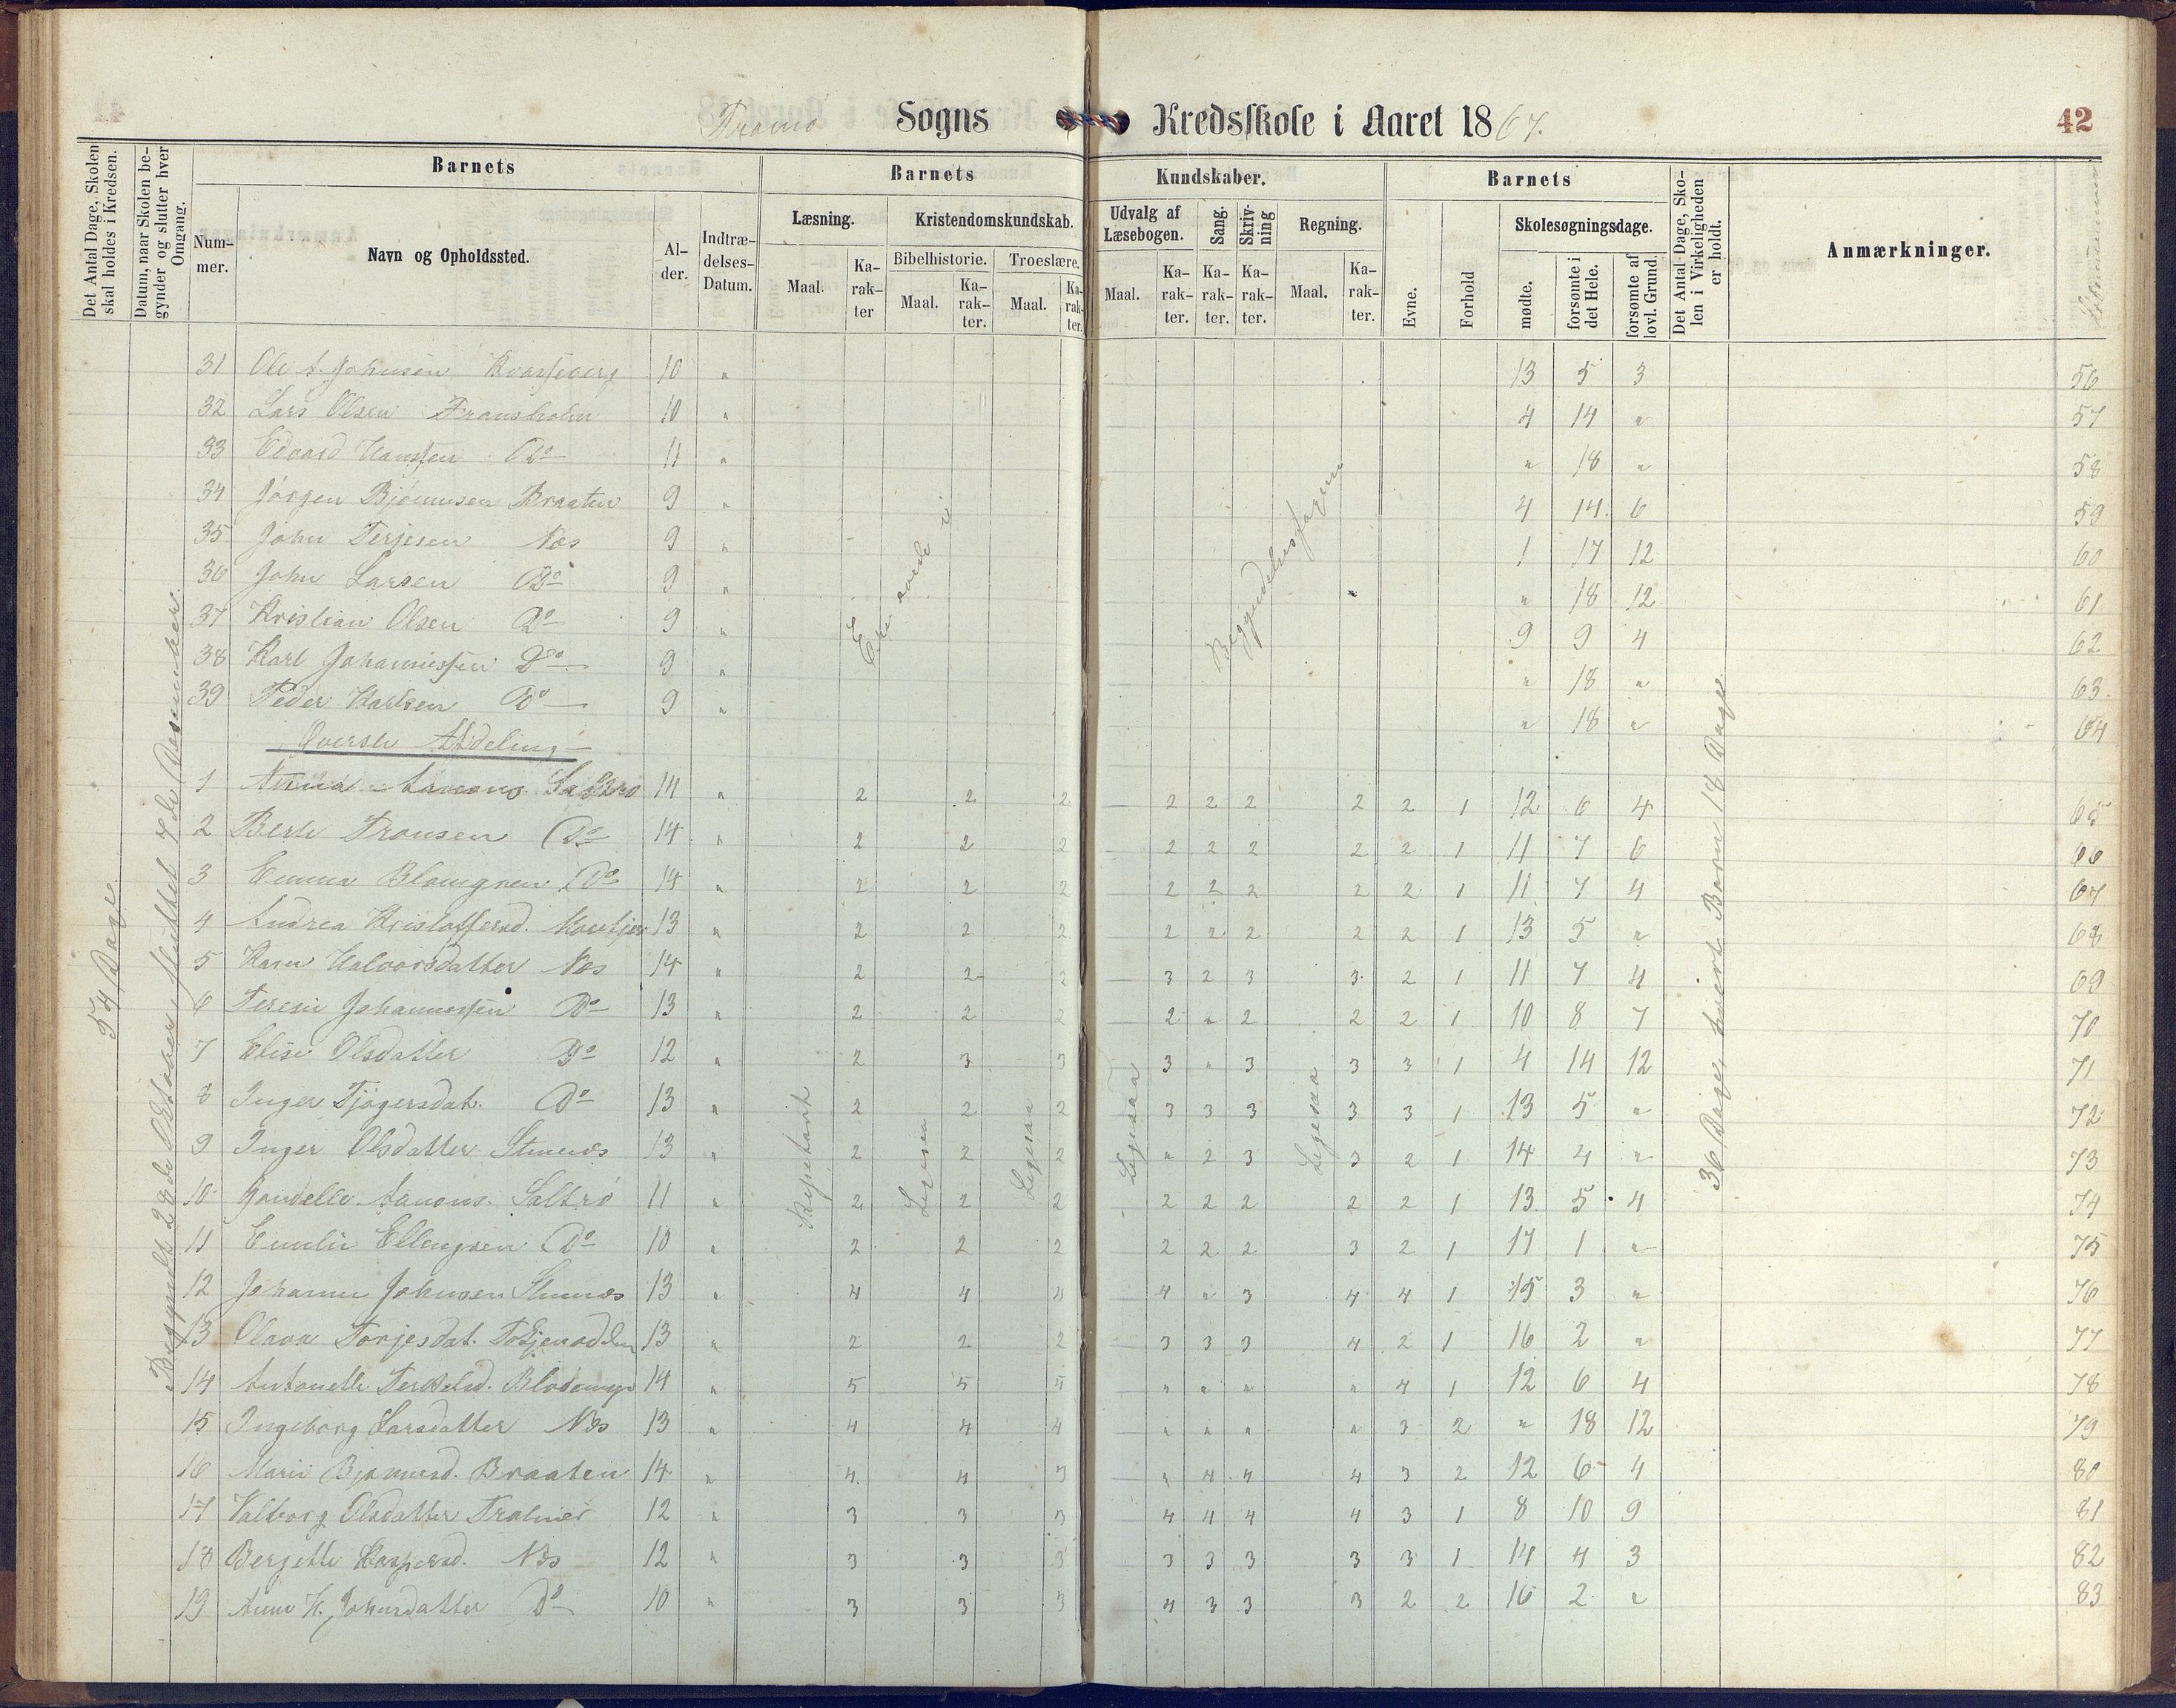 Tromø Sogns Kredsskole i Aaret 1867. 42
Det Antal Dage, Skolen skal holdes i Kredsen.
Datum, naar Skolen begynder og slutter hver Omgang.
Barnets
Nummer.
Navn og Opholdssted.
Alder.
Indtrædelses-Datum.
Barnets Kundskaber.
Læsning. Maal. Karakter
Kristendomskundskab.
Bibelhistorie. Maal. Karakter.
Troeslære. Maal. Karakter.
Udvalg af Læsebogen. Maal. Karakter.
Sang. Karakter.
Skrivning Karakter.
Regning. Maal. Karakter.
Barnets
Evne. Forhold
Skolesøgningsdage.
mødte. forsømte i det Hele. forsømte af lovl. Grund.
Det Antal Dage, Skolen i Virkeligheden er holdt.
Anmærkninger.
54 Dage
Begyndt 28de Oktober, sluttet 7de Desember.
31 Ole A. Johnsen 10 " 13 5 3 56
32 Lars Olsen 10 " 4 14 " 57
33 Edvard Hanssen Do 11 " " 18 " 58
34 Jørgen Bjørnnsen Braaten 9 " 4 14 6 59
35 John Terjesen Næs 9 " 1 17 12 60
36 John Larsen Do 9 " " 18 12 61
37 Kristian Olsen Do 9 " 9 9 4 62
38 Karl Johannessen Do 9 " " 18 " 63
39 Peder Karlsen Do 9 " " 18 " 64
Begyndelsesfagene
Øverste Afdeling
1 Anna Aanons. Saltrø 14 " 2 2 2 2 2 2 2 2 1 12 6 4 65
2 Berte Fransen Do 14 " 2 2 2 2 2 2 2 2 1 11 7 6 66
3 Emma Blomgren Do 14 " 2 2 2 2 2 2 2 2 1 11 7 4 67
4 Andrea Kristoffersd. 13 " 2 2 2 2 2 2 2 2 1 13 5 " 68
5 Karen Halvorsdatter Næs 14 " 2 2 2 3 2 3 3 2 1 11 7 4 69
6 Teresie Johannessen Do 13 " 2 2 2 2 " 2 2 2 1 10 8 7 70
7 Elise Olsdatter Do 12 " 2 3 3 3 " 3 3 3 1 4 14 12 71
8 Inger Tjøgersdat. Do 13 " 2 2 2 3 3 3 3 3 1 13 5 " 72
9 Inger Olsdatter 13 " 2 2 2 " 2 3 3 2 1 14 4 " 73
10 Aanons. Saltrø 11 " 2 2 2 2 2 2 2 2 1 13 5 4 74
11 Emilie Ellengsen Do 10 " 2 2 2 2 2 2 3 2 1 17 1 " 75
12 Johanne Johnsen 13 " 4 4 4 4 " 3 4 4 1 15 3 " 76
13 Olava Torjesdat. 13 " 2 2 2 3 3 3 4 2 1 16 2 " 77
14 Antonette Terkelsd. 14 " 5 5 5 " " " " 4 1 12 6 4 78
15 Ingeborg Larsdatter Næs 13 " 4 4 4 " " " " 3 2 " 18 12 79
16 Marie Bjørnnsd. Braaten 14 " 4 4 3 " 4 4 4 3 2 12 6 4 80
17 Valborg Olsdatter 12 " 3 3 3 4 4 4 4 3 1 8 10 9 81
18 Bergette Kaspersd. Næs 12 " 3 3 3 3 3 3 3 3 1 14 4 3 82
19 Anne K. Johnsdatter Do 10 " 3 3 3 4 3 3 3 2 2 16 2 " 83
Repetert
Ligesaa
Ligesaa
Ligesaa
36 Dage, hvert Barn 18 Dage